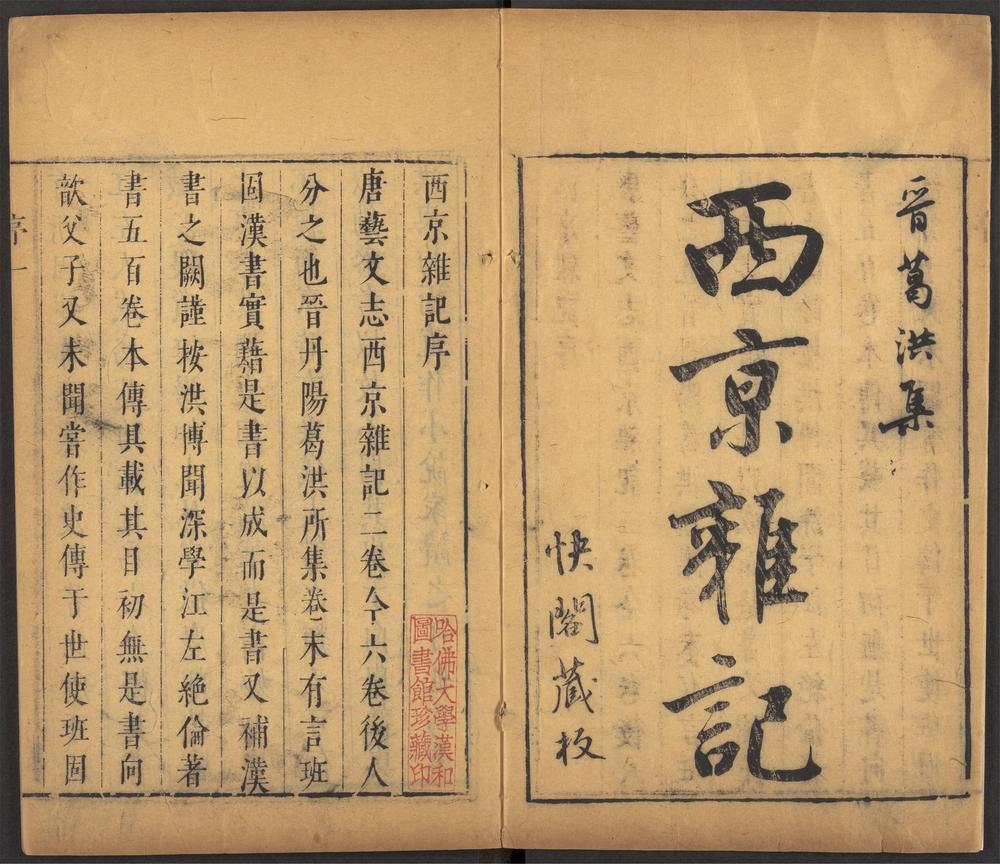 晉葛洪集
西京雜記
快閣藏板
西京雜記序
唐藝文志西京雜記二卷今六卷後人
分之也晉丹陽葛洪所集卷末有言班
固漢書實藉是書以成而是書又補漢
書之闕謹按洪博聞深學江左絕倫著
書五百卷本傳具載其目初無是書向
歆父子又未聞嘗作史傳于世使班固
序 一
哈佛大學漢和
圖書館珍藏印